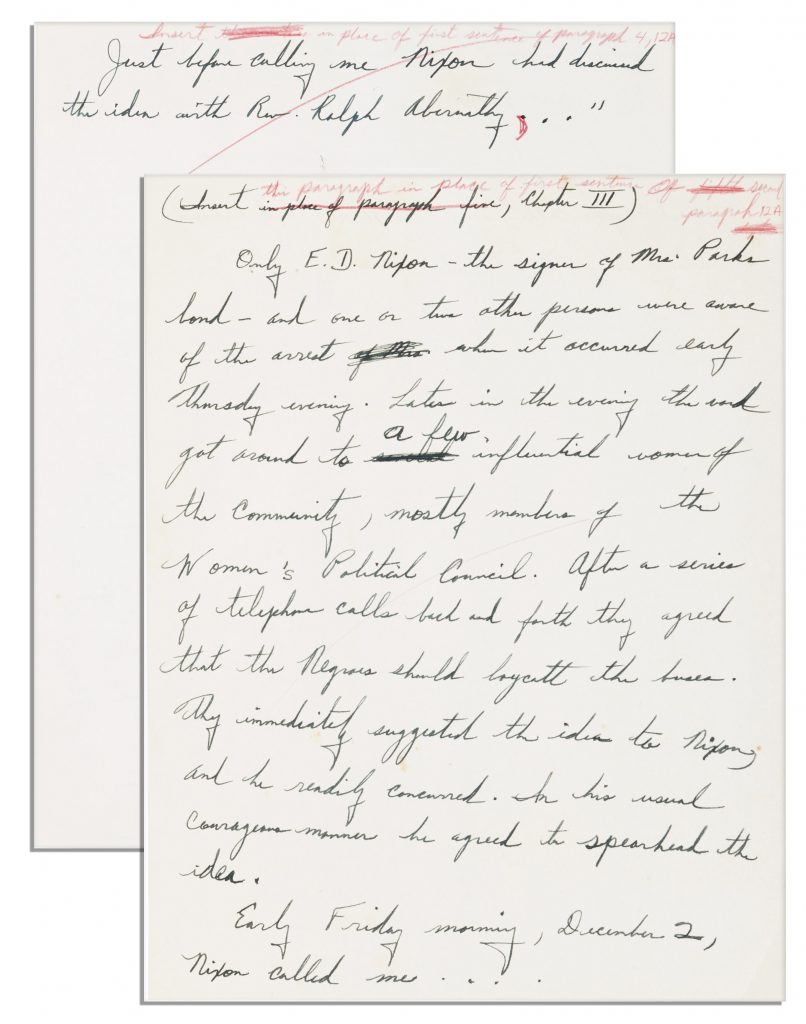 Insert in place of first sentence of paragraph 4, 12A
Just before calling me Nixon had discussed
the idea with Rev. Ralph Abernathy, . . . "
the paragraph in place of first sentence of second
(Insert in place of paragraph five, Chapter III)
paragraph 12A
Only E. D. Nixon – the signer of Mrs. Parks
bond – and one or two other persons were aware
of the arrest of Mrs when it occurred early
Thursday evening. Later in the evening the word
a few
got around to influential women of
the community, mostly members of the
Women's Political Council. After a series
of telephone calls back and forth they agreed
that the Negroes should boycott the buses.
They immediately suggested the idea to Nixon,
and he readily concurred. In his usual
courageous manner he agreed to spearhead the
idea.
Early Friday morning, December 2,
Nixon called me . . . .